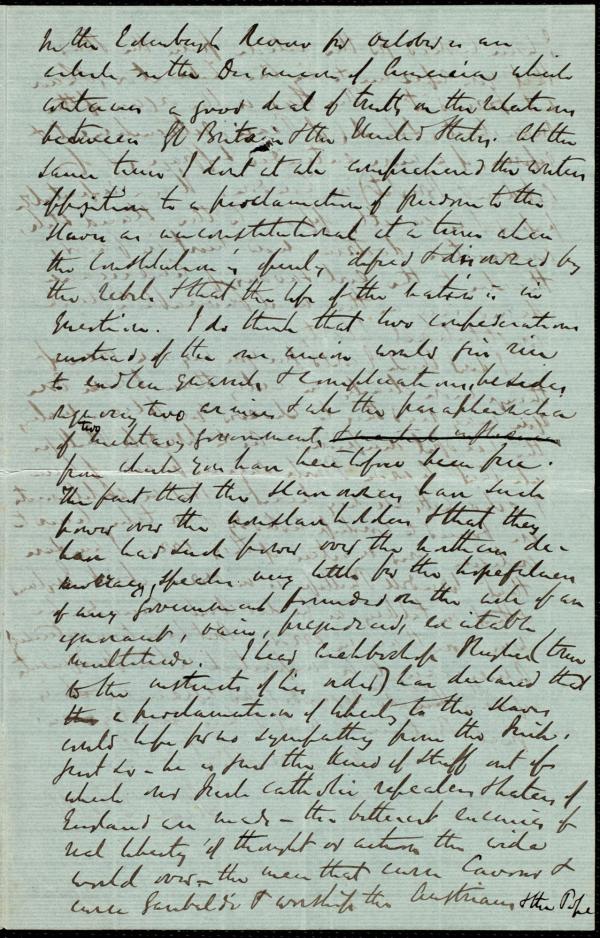 In the Edinburgh Review for October is an
article on the Disunion of America which
contains a good deal of truth on the relations
between Gt Britain & the United States. At the
same time I dont at all comprehend the writers
opposition to a proclamation of freedom to the
slaves as unconstitutional at a time when
the Constitution is openly defied & disowned by
the rebels & that the life of the nation is in
question. I do think that two confederations
instead of the one union would give rise
to endless quarrels & complications, besides
requiring two armies & all the paraphernalia
of two military governments
from which you have heretofore been free.
The fact that the slaveowners have such
power over the nonslaveholders & that they
have had such power over the northern de-
mocracy, speaks very little for the hopefulness
of any government founded on the will of an
ignorant, vain, prejudiced, excitable
multitude. I hear Archbishop Hughes (true
to the instincts of his order) has declared that
the a proclamation of liberty to the slaves
could hope for no sympathy from the Irish.
Just so - he is just the kind of stuff out of
which our Irish Catholic repealers & haters of
England are made - the bitterest enemies of
real liberty of thought or action the wide
world over - the men that curse Cavour &
curse Garibaldi & worship the Austrians & the Pope